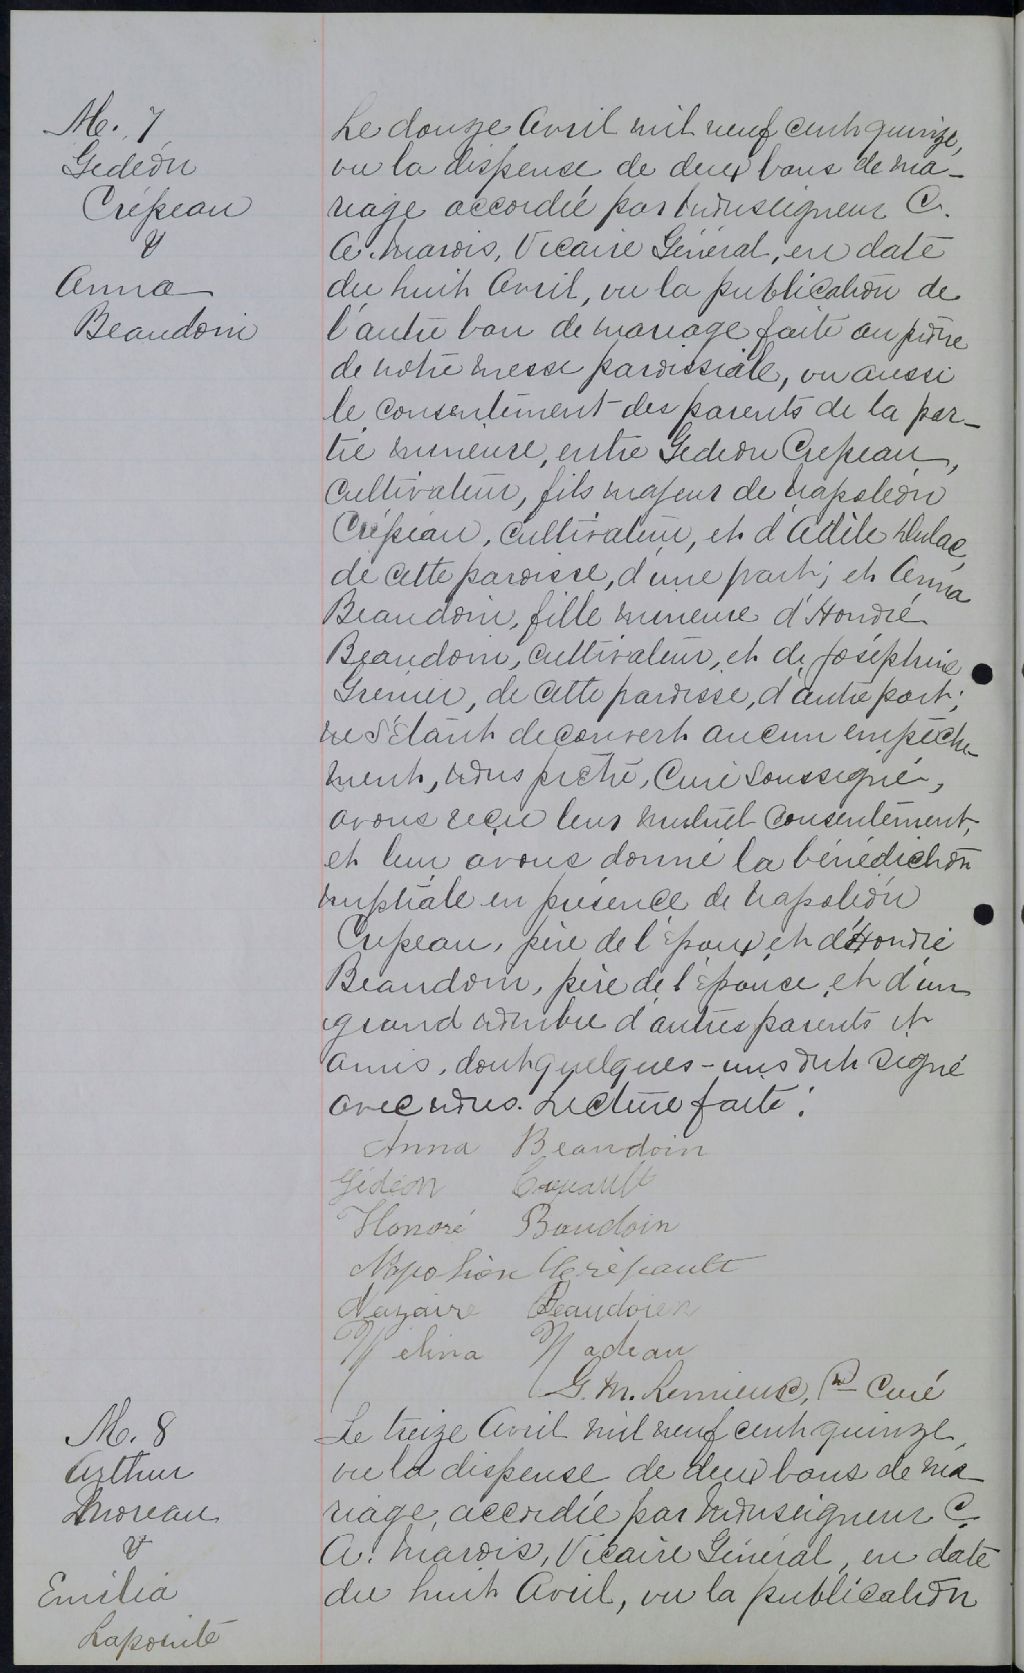 M. 7
Gédéon
Crépeau
&
Anna
Beaudoin
Le douze Avril mil neuf cent quinze,
vu la dispense de deux bans de ma-
riage accordée par Monseigneur C.
A. Marois, Vicaire Général, en date
du huit Avril, vu la publication de
l'autre ban de mariage faite au prône
de notre messe paroissiale, vu aussi
le consentement des parents de la par-
tie mineure, entre Gédéon Crépeau,
cultivateur, fils majeur de Napoléon
Crépeau, cultivateur, et d'Adile Dulac,
de cette paroisse, d'une part; et Anna
Beaudoin, fille mineure d'Honoré
Beaudoin, cultivateur, et de Joséphine
Grenier, de cette paroisse, d'autre part;
ne s'étant découvert aucun empêche-
ment, nous prêtre, Curé soussigné,
avons reçu leur mutuel consentement,
et leur avons donné la bénédiction
nuptiale en présence de Napoléon
Crépeau, père de l'époux, et d'Honoré
Beaudoin, père de l'épouse, et d'un
grand nombre d'autres parents et
amis, dont quelques-uns ont signé
avec nous. Lecture faite.
Anna Beaudoin
Gédéon Crépault
Honoré Baudoin
Napoléon Crépault
Nazaire Beaudoien
Mélina Nadeau
G. M. Lemieux, Ptre Curé
M. 8
Arthur
Moreau
&
Emilia
Lapointe
Le treize Avril mil neuf cent quinze,
vu la dispense de deux bans de ma-
riage, accordée par Monseigneur C.
A. Marois, Vicaire Général, en date
du huit Avril, vu la publication